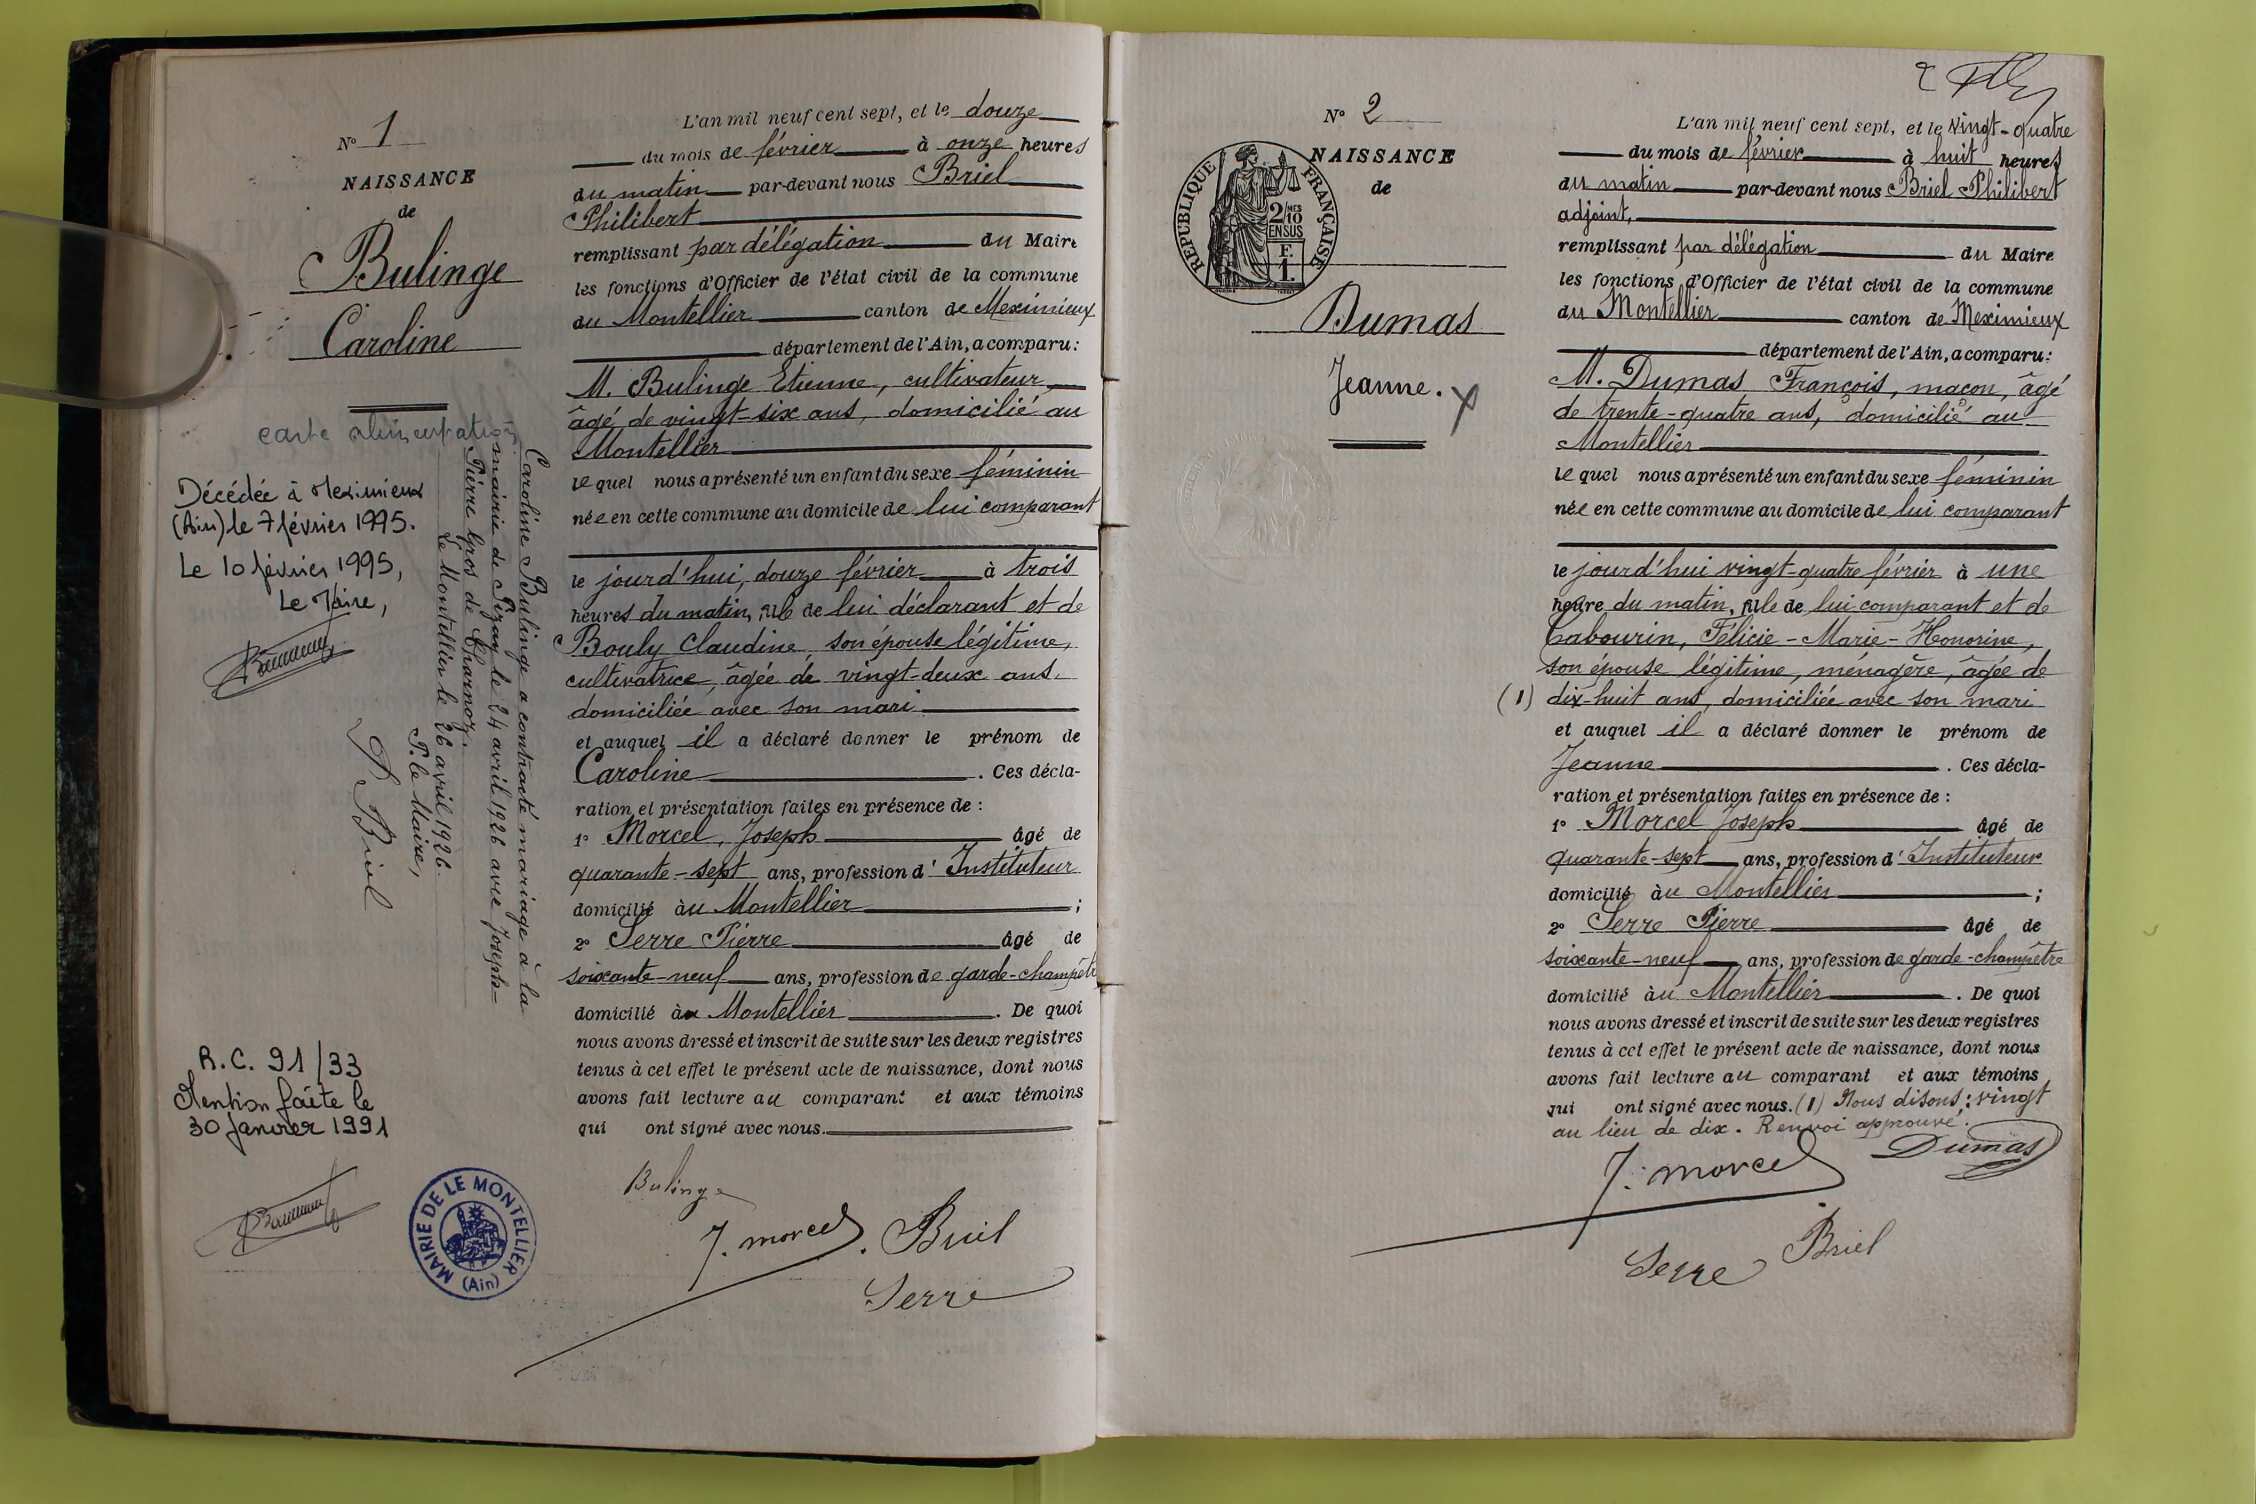 N° 1
NAISSANCE
de
Bulinge
Caroline
carte alimentation
Décédée à Meximieux
(Ain) le 7 février 1995.
Le 10 février 1995,
Le Maire,
Caroline Bulinge a contracté mariage à la
mairie de Pizay le 24 avril 1926 avec Joseph-
Pierre Gros de Charnoz.
Le Montellier le 26 avril 1926.
P. le Maire,
P Briel
R.C. 91/33
Mention faite le
30 Janvier 1991
MAIRIE DE LE MONTELLIER
(Ain)
L'an mil neuf cent sept, et le douze
du mois de février à onze heures
du matin par-devant nous Briel
Philibert
remplissant par délégation du Maire
les fonctions d'Officier de l'état civil de la commune
du Montellier canton de Meximieux
département de l'Ain, a comparu:
M. Bulinge Etienne, cultivateur,
âgé de vingt-six ans, domicilié au
Montellier
lequel nous a présenté un enfant du sexe féminin
née en cette commune au domicile de lui comparant
le jourd'hui, douze février à trois
heures du matin, fille de lui déclarant et de
Bouly Claudine, son épouse légitime,
cultivatrice, âgée de vingt-deux ans,
domiciliée avec son mari
et auquel il a déclaré donner le prénom de
Caroline. Ces décla-
ration et présentation faites en présence de :
1° Morcel, Joseph âgé de
quarante-sept ans, profession d'Instituteur
domicilié àu Montellier ;
2° Serre Pierre âgé de
soixante-neuf ans, profession de garde-champêtre
domicilié àu Montellier. De quoi
nous avons dressé et inscrit de suite sur les deux registres
tenus à cet effet le présent acte de naissance, dont nous
avons fait lecture au comparant et aux témoins
qui ont signé avec nous.
Bulinge
J. morcel Briel
Serre
N° 2
NAISSANCE
de
RÉPUBLIQUE FRANÇAISE
2/10 MES
EN SUS
F.
1.
Dumas
Jeanne. x
2
L'an mil neuf cent sept, et le vingt-quatre
du mois de février à huit heures
du matin par-devant nous Briel Philibert
adjoint,
remplissant par délégation du Maire
les fonctions d'Officier de l'état civil de la commune
du Montellier canton de Meximieux
département de l'Ain, a comparu:
M. Dumas François, maçon, âgé
de trente-quatre ans, domicilié au
Montellier
lequel nous a présenté un enfant du sexe féminin
née en cette commune au domicile de lui comparant
le jourd'hui vingt-quatre février à une
heure du matin, fille de lui comparant et de
Cabourin, Félicie-Marie-Honorine,
son épouse légitime, ménagère, âgée de
(1) dix-huit ans, domiciliée avec son mari
et auquel il a déclaré donner le prénom de
Jeanne. Ces décla-
ration et présentation faites en présence de :
1° Morcel Joseph âgé de
quarante-sept ans, profession d'Instituteur
domicilié àu Montellier ;
2° Serre Pierre âgé de
soixante-neuf ans, profession de garde-champêtre
domicilié àu Montellier. De quoi
nous avons dressé et inscrit de suite sur les deux registres
tenus à cet effet le présent acte de naissance, dont nous
avons fait lecture au comparant et aux témoins
qui ont signé avec nous. (1) Nous disons : vingt
au lieu de dix. Renvoi approuvé.
Dumas
J. morcel
Serre Briel